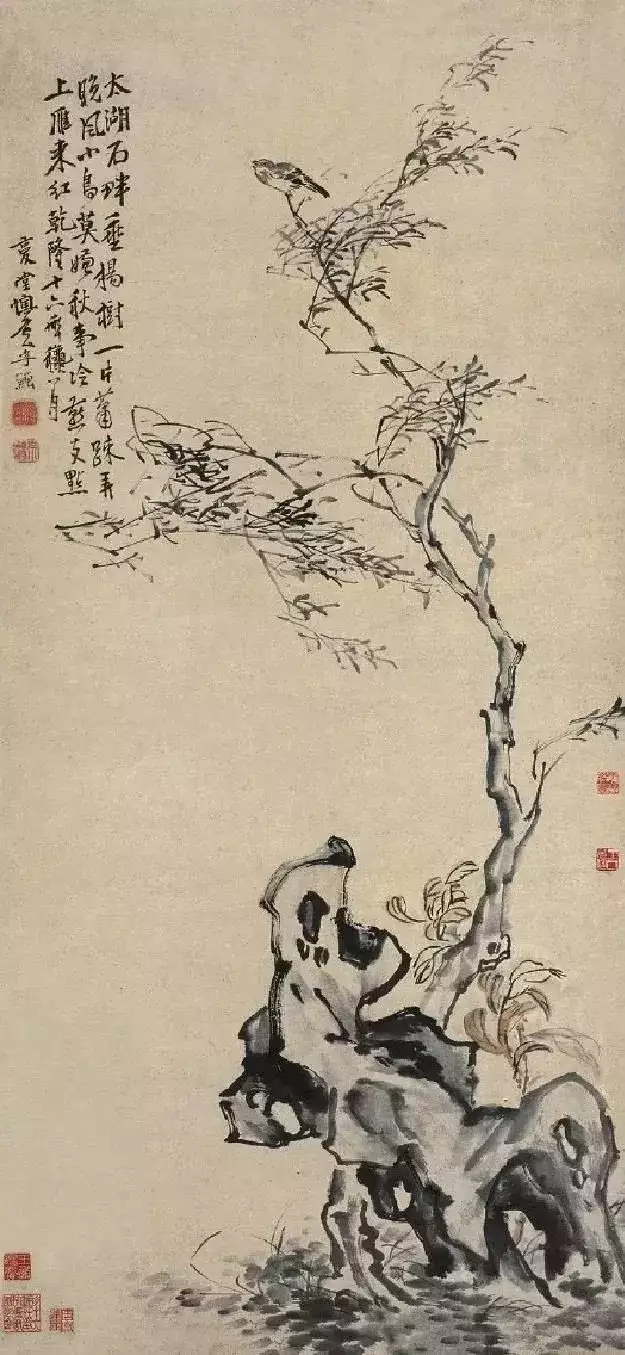 太湖石畔垂楊樹一片蕭疎弄
晚風小鳥莫嫌秋事冷燕支點
上雁來紅乾隆十六年穐八月
復堂懊道人李鱓